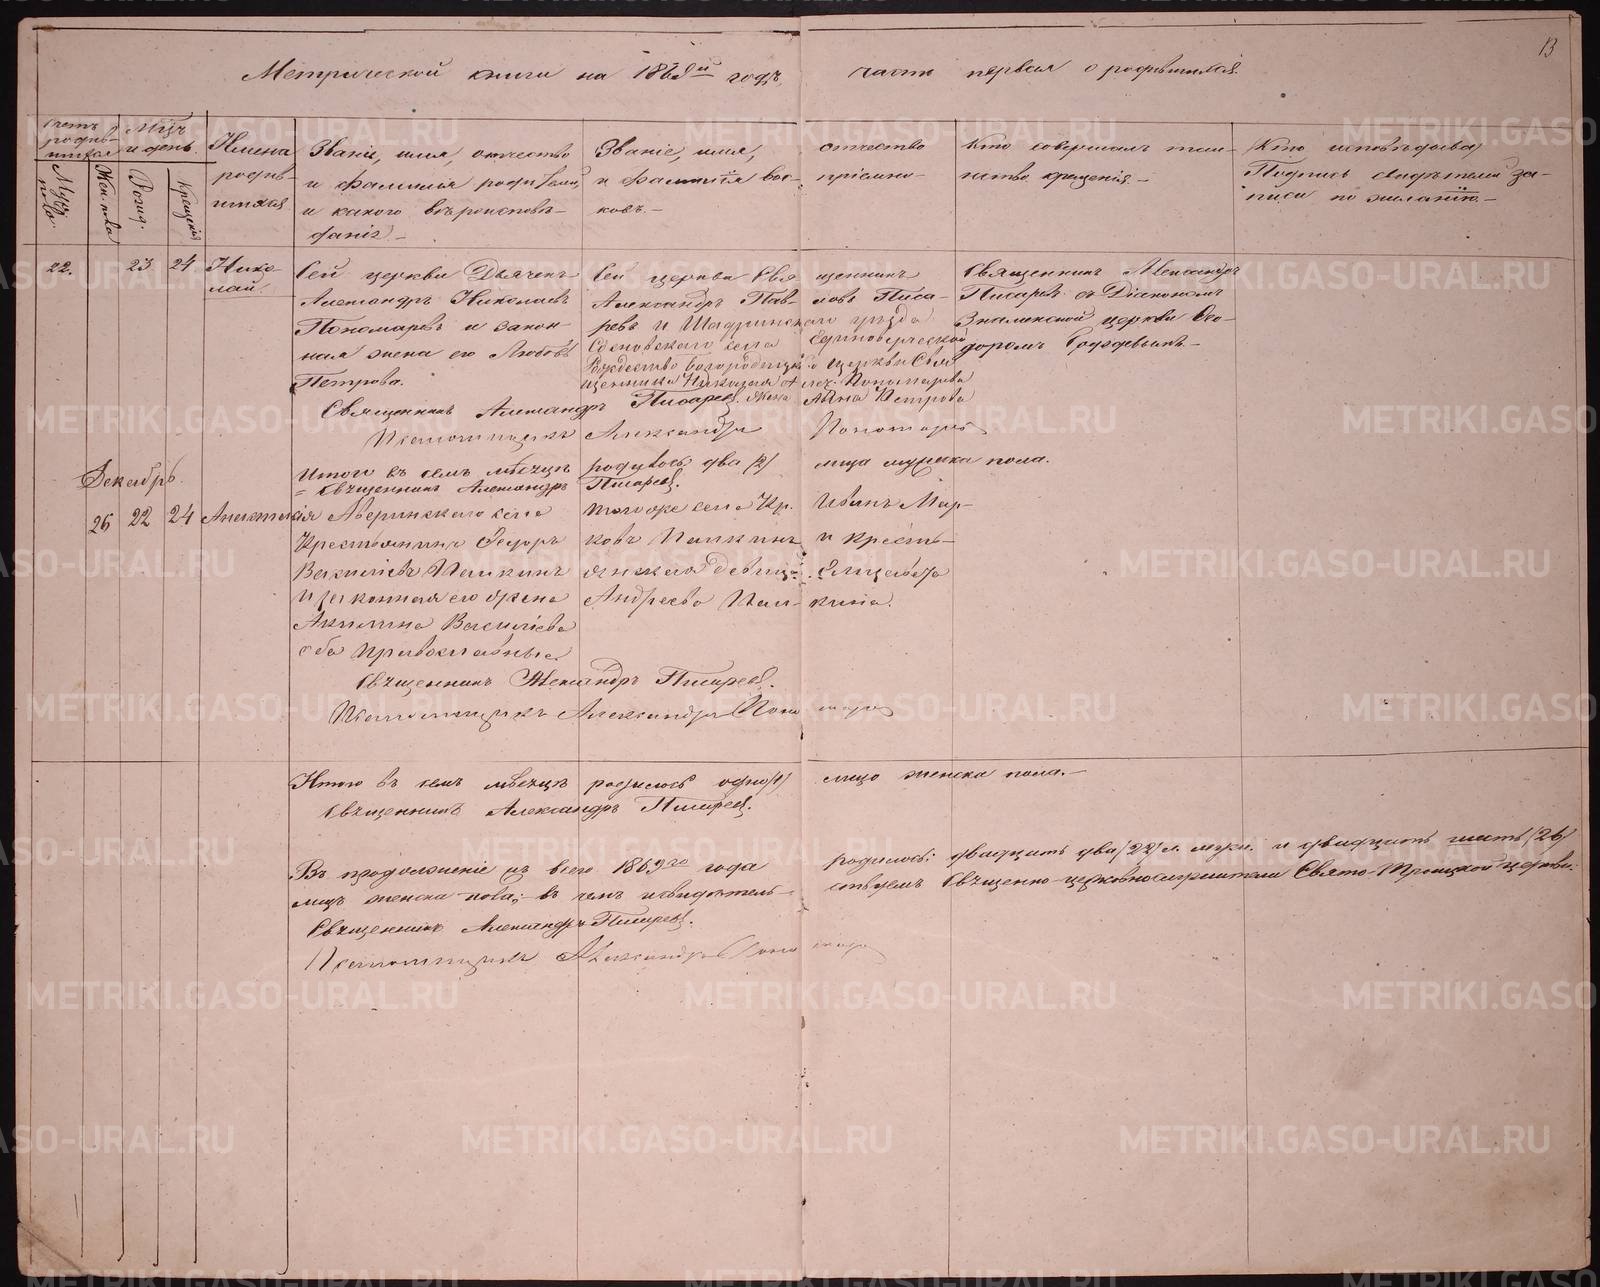 13
Метрической книги на 1869й годъ, часть первая о родившихся.
Счетъ родив-
шихся
Муж. пола.
Жен. пола
М-цъ
и день.
Рожд.
Крещенія
Имена
роди-
вшихся
Званіе, имя, отчество
и фамилія родителей,
и какого вѣроисповѣ-
данія.-
Званіе, имя, отчество
и фамилія вос- пріемни-
ковъ.-
Кто совершалъ таи-
нство крещенія.-
Кто исповѣдыва
Подпись свидѣтелей за-
писи по желанію.-
22.
23
24
Нико-
лай.
Сей церкви Дьячекъ
Александръ Николаевъ
Пономаревъ и закон-
ная жена его Любовь
Петрова.
Сей церкви Свя щенникъ
Александръ Пав- ловъ Писа-
ревъ и Шадринскаго уѣзда
села Единоверческой
Рождество Богородицкой церкви Свя
щенника Николая Пономарева
жена Анна Петрова
Священникъ Александръ
Писаревъ съ Діакономъ
Знаменской церкви Ѳео-
доромъ
Священникъ Александръ Писаревъ.
Псаломщикъ Александръ Пономаре
Итого въ семъ мѣсяцѣ родилось два /2/ лица мужска пола.
Священникъ Александръ Писаревъ.
Декабрь.
26
22
24
Анастасія
Аверинскаго села
Крестьянинъ Ѳедоръ
Василіевъ Пашкинъ
и законная его жена
Акилина Василіева
оба Православные.
Тогоже села Кр. Иванъ Мар-
ковъ Пашкинъ и кресть-
янская девица Елисавета
Андреева Паш- кина.
Священникъ Александръ Писаревъ.
Псаломщикъ Александръ Пономаре
Итого въ семъ мѣсяцѣ родилось одно /1/ лицо женска пола.-
Священникъ Александръ Писаревъ.
Въ продолженіе из всего 1869го года родилось: двадцать два /22/ л. мужс. и двадцать шесть /26/
лицъ женска пола; въ чемъ и свидѣтель- ствуемъ Священно-церковнослужители Свято-Троицкой церкви.
Священникъ Александръ Писаревъ.
Псаломщикъ Александръ Пономаре
METRIKI.GASO-URAL.RU